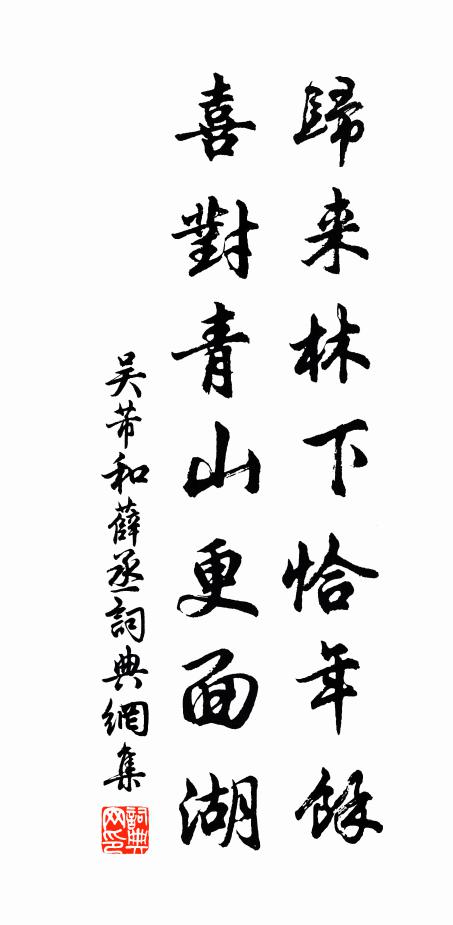 歸来林下恰年餘
喜對青山更面湖
吴芾和薛丞詞典網集
詞典网印